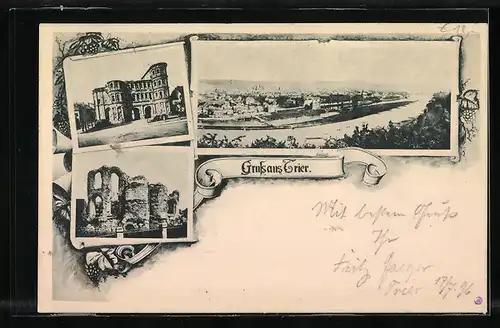 Gruss aus Trier.
Mit bestem Gruß
Ihr
Fritz Jaeger
Trier 17/7. 96